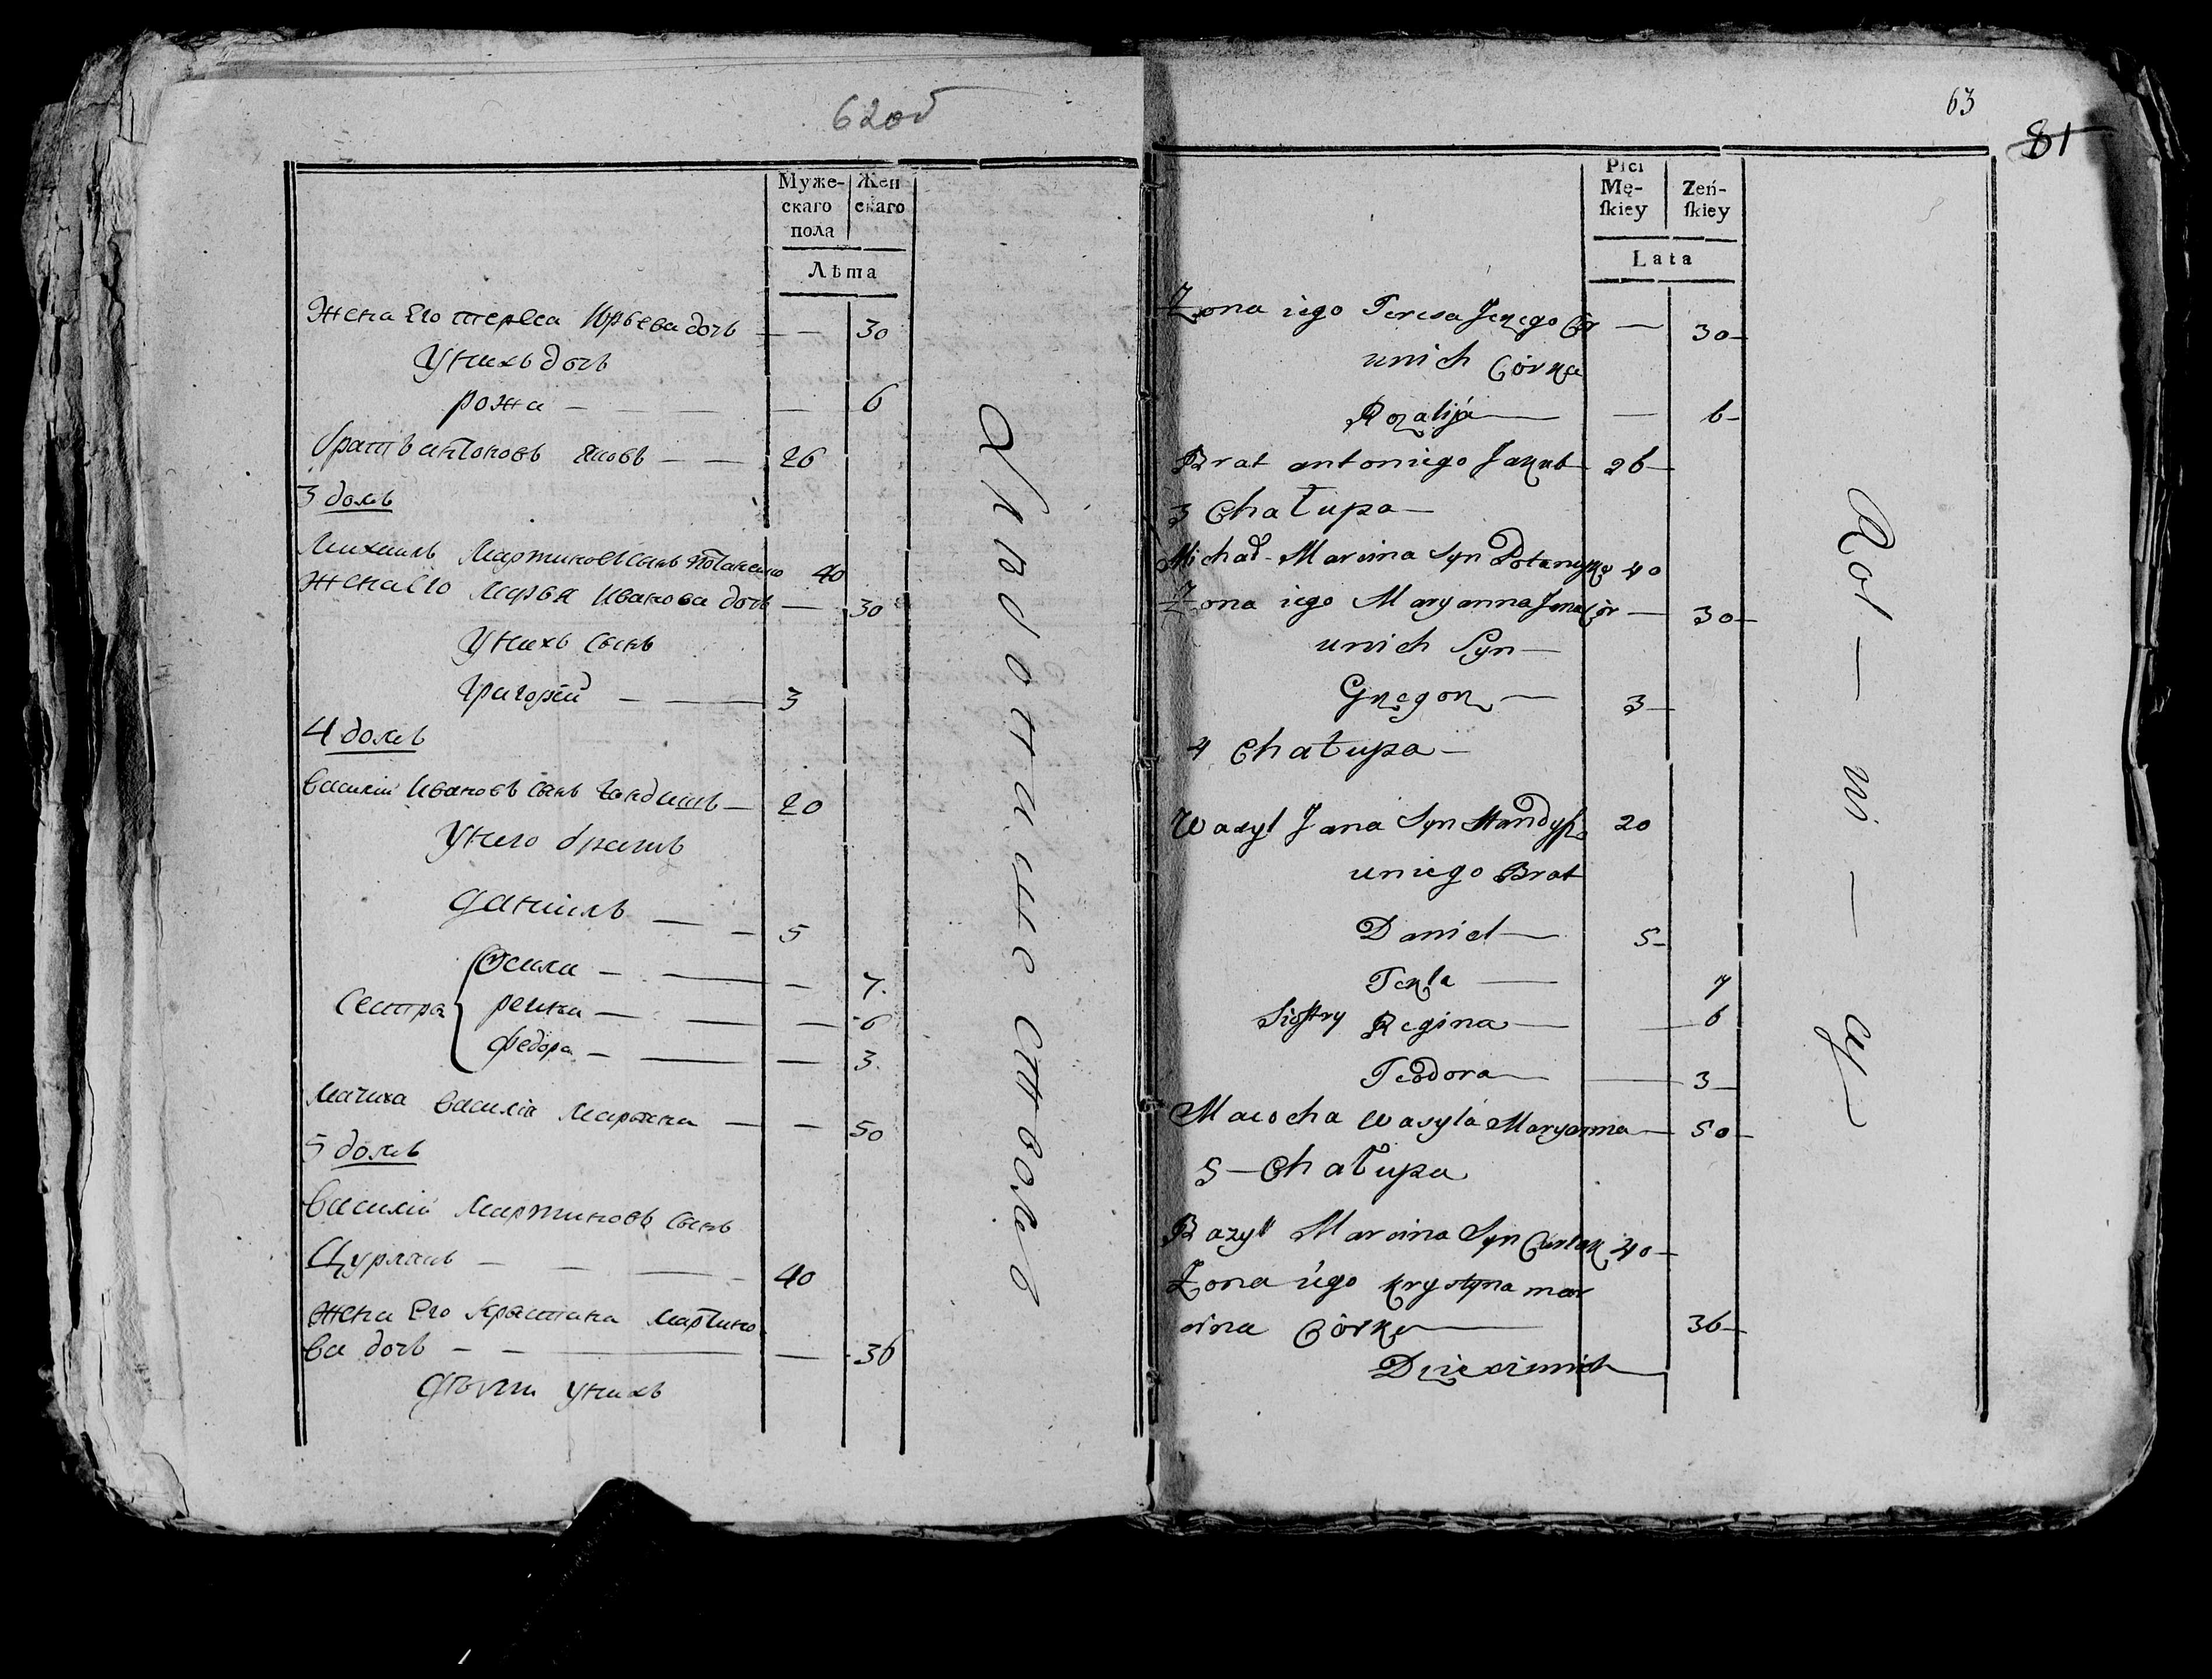 62об
Муже-
скаго
пола
Жен
скаго
Лѣта
Жена Его тереса Юрьева дочь — — 30
У нихъ дочь
рожа — — — — 6
братъ антоновъ яковъ — — 26
3 домъ
Михаилъ Мартиновъ сынъ 40
Жена Его Марья Иванова дочь — 30
У нихъ сынъ
Григорей — — 3
4 домъ
Василий Ивановъ сынъ — 20
У него братъ
Данилъ — — 5
— — — 7.
Сестра ренка — — — 6
федора — — — 3.
Мачиха Василия Марянна — — 50
5 домъ
Василий Мартиновъ сынъ
Цурланъ — — — 40
Жена Его Крыстина Мартино
ва дочь — — — 36
Дѣти у нихъ
63
81
Płci
Mę-
ſkiey
Zeń-
ſkiey
Lata
Zona iego Teresa Jerzego Cór — 30 —
unich Córka
Rozalija — — 6 —
Brat antoniego Jakub 26 —
3 Chałupa —
Michał Marcina Syn 40
Zona iego Maryanna Jana Cór — 30 —
unich Syn —
Grzegorz — 3 —
4 Chałupa —
Wasyl Jana Syn 20
uniego Brat
Daniel — 5 —
Tekla — 7
Siostry Regina — — 6
Teodora — — 3 —
Macocha Wasyla Maryanna — 50 —
5 — Chałupa
Bazyli Marcina Syn Curlak 40 —
Zona iego Krystyna mar
cina Córka — 36 —
Dzieci unich
Rol — ni — cy